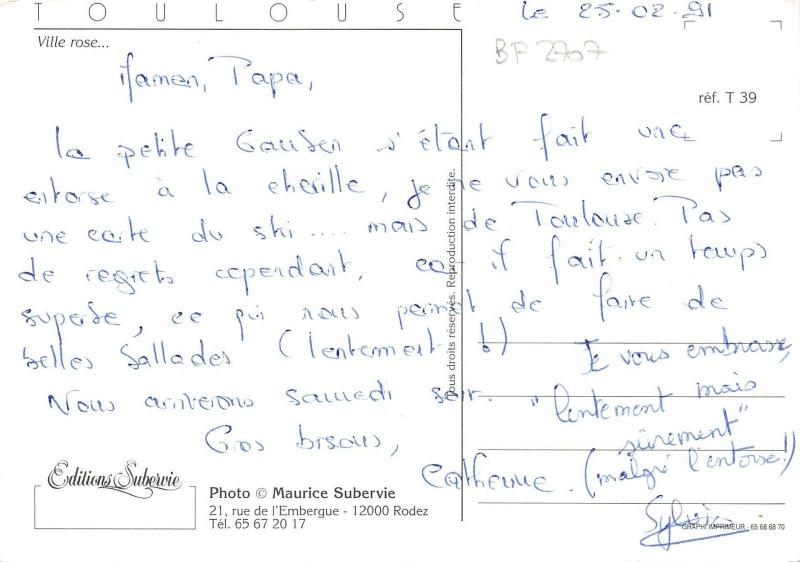 TOULOUSE
Ville rose...
le 25.02.91
BF 2707
réf. T 39
Maman, Papa,
la petite s'étant fait une
entorse à la cheville, je ne vous envoie pas
une carte du ski .... mais de Toulouse. Pas
de regrets cependant, car il fait un temps
superbe, ce qui nous permet de faire de
belles ballades (lentement !)
Nous arriverons samedi soir.
Gros bisous,
Catherine.
Je vous embrasse,
"lentement mais
sûrement"
(malgré l'entorse!)
Sylvie
Tous droits réservés. Reproduction interdite.
Editions Subervie
Photo © Maurice Subervie
21, rue de l'Embergue - 12000 Rodez
Tél. 65 67 20 17
GRAPHI IMPRIMEUR - 65 68 68 70